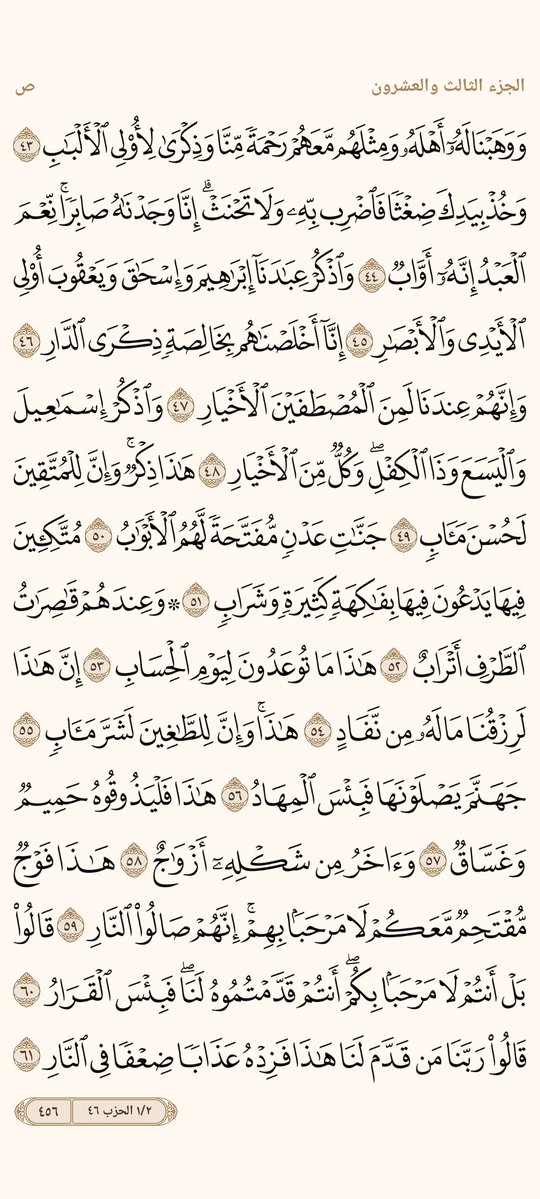 الجزء الثالث والعشرون ص
وَوَهَبْنَا لَهُۥٓ أَهْلَهُۥ وَمِثْلَهُم مَّعَهُمْ رَحْمَةً مِّنَّا وَذِكْرَىٰ لِأُو۟لِى ٱلْأَلْبَـٰبِ ٤٣
وَخُذْ بِيَدِكَ ضِغْثًا فَٱضْرِب بِّهِۦ وَلَا تَحْنَثْ ۗ إِنَّا وَجَدْنَـٰهُ صَابِرًا ۚ نِّعْمَ
ٱلْعَبْدُ إِنَّهُۥٓ أَوَّابٌ ٤٤ وَٱذْكُرْ عِبَـٰدَنَآ إِبْرَٰهِيمَ وَإِسْحَـٰقَ وَيَعْقُوبَ أُو۟لِى
ٱلْأَيْدِى وَٱلْأَبْصَـٰرِ ٤٥ إِنَّآ أَخْلَصْنَـٰهُم بِخَالِصَةٍ ذِكْرَى ٱلدَّارِ ٤٦
وَإِنَّهُمْ عِندَنَا لَمِنَ ٱلْمُصْطَفَيْنَ ٱلْأَخْيَارِ ٤٧ وَٱذْكُرْ إِسْمَـٰعِيلَ
وَٱلْيَسَعَ وَذَا ٱلْكِفْلِ ۖ وَكُلٌّ مِّنَ ٱلْأَخْيَارِ ٤٨ هَـٰذَا ذِكْرٌ ۚ وَإِنَّ لِلْمُتَّقِينَ
لَحُسْنَ مَـَٔابٍ ٤٩ جَنَّـٰتِ عَدْنٍ مُّفَتَّحَةً لَّهُمُ ٱلْأَبْوَٰبُ ٥٠ مُتَّكِـِٔينَ
فِيهَا يَدْعُونَ فِيهَا بِفَـٰكِهَةٍ كَثِيرَةٍ وَشَرَابٍ ٥١ ۞ وَعِندَهُمْ قَـٰصِرَٰتُ
ٱلطَّرْفِ أَتْرَابٌ ٥٢ هَـٰذَا مَا تُوعَدُونَ لِيَوْمِ ٱلْحِسَابِ ٥٣ إِنَّ هَـٰذَا
لَرِزْقُنَا مَا لَهُۥ مِن نَّفَادٍ ٥٤ هَـٰذَا ۚ وَإِنَّ لِلطَّـٰغِينَ لَشَرَّ مَـَٔابٍ ٥٥
جَهَنَّمَ يَصْلَوْنَهَا فَبِئْسَ ٱلْمِهَادُ ٥٦ هَـٰذَا فَلْيَذُوقُوهُ حَمِيمٌ
وَغَسَّاقٌ ٥٧ وَءَاخَرُ مِن شَكْلِهِۦٓ أَزْوَٰجٌ ٥٨ هَـٰذَا فَوْجٌ
مُّقْتَحِمٌ مَّعَكُمْ لَا مَرْحَبًۢا بِهِمْ ۚ إِنَّهُمْ صَالُوا۟ ٱلنَّارِ ٥٩ قَالُوا۟
بَلْ أَنتُمْ لَا مَرْحَبًۢا بِكُمْ ۖ أَنتُمْ قَدَّمْتُمُوهُ لَنَا ۖ فَبِئْسَ ٱلْقَرَارُ ٦٠
قَالُوا۟ رَبَّنَا مَن قَدَّمَ لَنَا هَـٰذَا فَزِدْهُ عَذَابًا ضِعْفًا فِى ٱلنَّارِ ٦١
١/٢ الحزب ٤٦ ٤٥٦